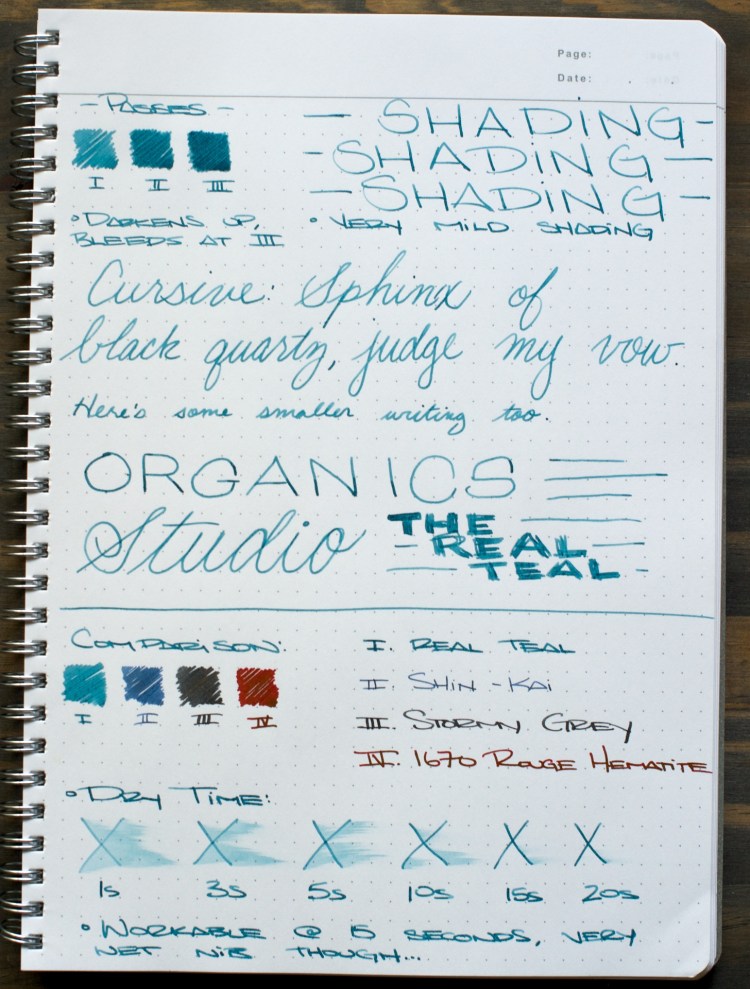 Page:
Date:
- Passes -
I II III
SHADING
SHADING
SHADING
• DARKENS UP,
BLEEDS AT III
• VERY MILD SHADING
Cursive: Sphinx of
black quartz, judge my vow.
Here's some smaller writing too.
ORGANICS
Studio
THE
REAL
TEAL
COMPARISON:
I II III IV
I. REAL TEAL
II. SHIN-KAI
III. STORMY GREY
IV. 1670 ROUGE HEMATITE
• DRY TIME:
X X X X X X
1s 3s 5s 10s 15s 20s
• WORKABLE @ 15 SECONDS, VERY
WET NIB THOUGH...